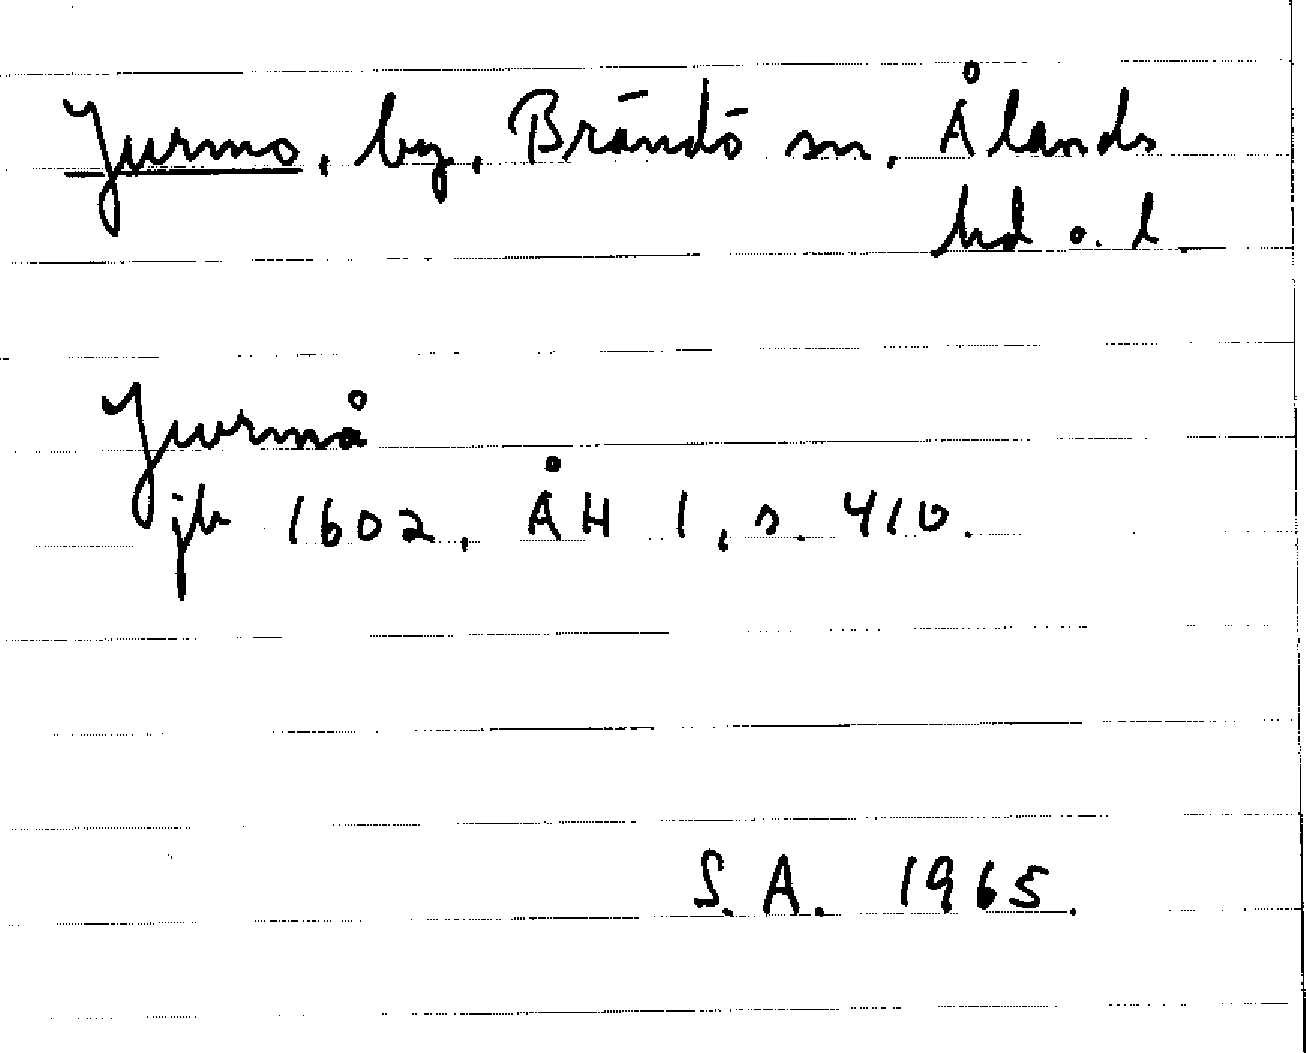 Jurmo, by, Brändö sn, Ålands
hd o. l.
Jurmå
jb 1602, ÅH 1, s. 410.
S.A. 1965.